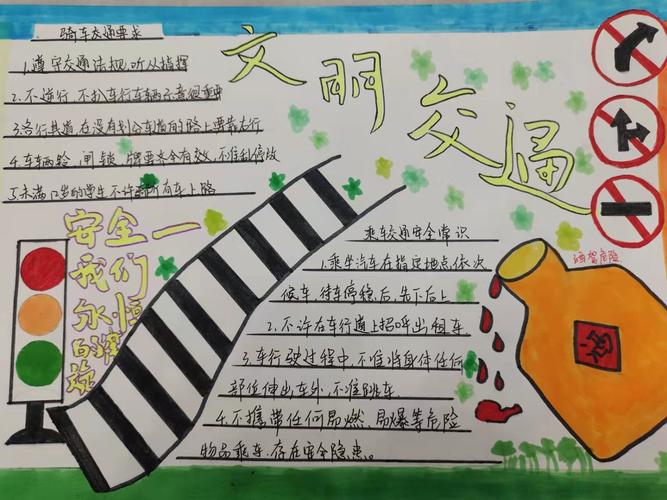 骑车交通要求
1.遵守交通法规,听从指挥
2.不逆行,不扒车行车辆示意很重要
3.各行其道,在没有划分车道的路上要靠右行
4.车辆铃、闸、锁、牌要齐全有效,不准乱停放
5.未满12岁的学生不许骑自行车上路
文明交通
安全一
我们
永恒
的旋
乘车交通安全常识
1.乘坐汽车在指定地点,依次
候车,待车停稳后,先下后上
2.不许在车行道上招呼出租车
3.车行驶过程中,不准将身体任何
部位伸出车外,不准跳车
4.不携带任何易燃、易爆等危险
物品乘车,存在安全隐患。
酒驾危险
酒